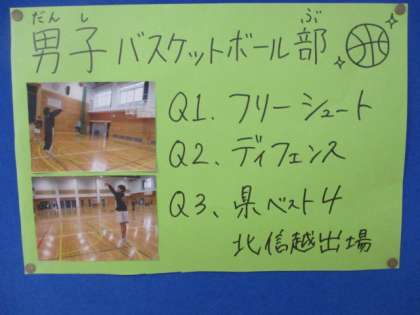 だんし ぶ
男子バスケットボール部
Q1、フリーシュート
Q2、ディフェンス
Q3、県ベスト4
北信越出場